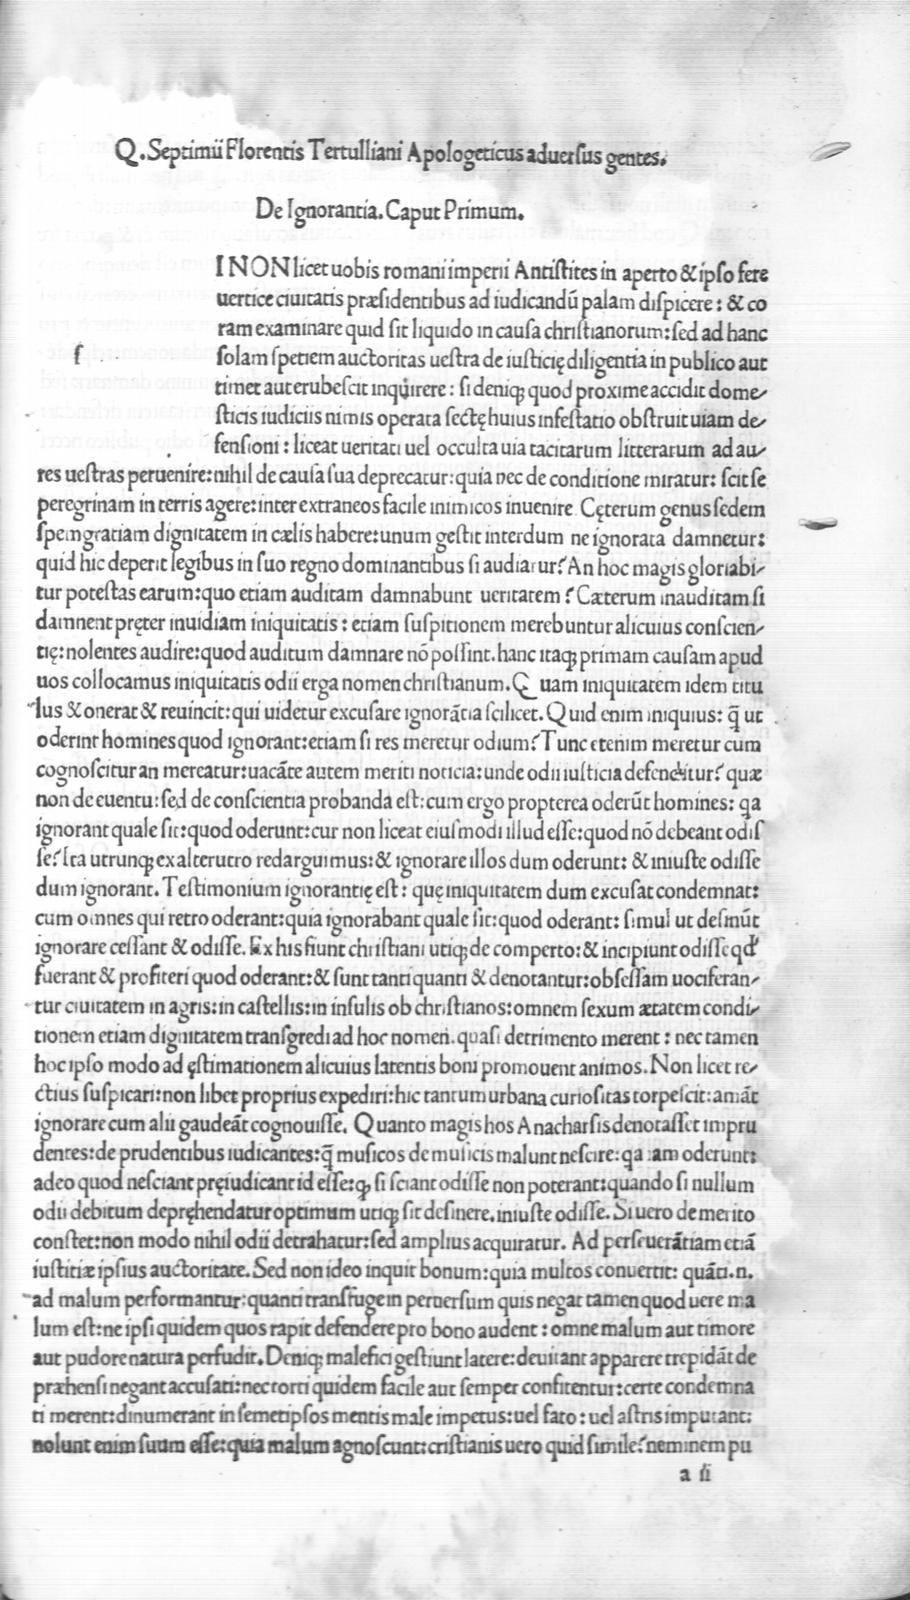 Q. Septimii Florentis Tertulliani Apologeticus aduersus gentes.
De Ignorantia. Caput Primum.
I NON licet uobis romani imperii Antistites in aperto & ipso fere
uertice ciuitatis præsidentibus ad iudicandū palam dispicere: & co
ram examinare quid sit liquido in causa christianorum: sed ad hanc
f solam spetiem auctoritas uestra de iusticię diligentia in publico aut
timet aut erubescit inquirere: si deniqꝫ quod proxime accidit dome-
sticis iudiciis nimis operata sectę huius infestatio obstruit uiam de-
fensioni: liceat ueritati uel occulta uia tacitarum litterarum ad au-
res uestras peruenire: nihil de causa sua deprecatur: quia nec de conditione miratur: scit se
peregrinam in terris agere: inter extraneos facile inimicos inuenire. Cęterum genus sedem
spem gratiam dignitatem in cælis habere: unum gestit interdum ne ignorata damnetur:
quid hic deperit legibus in suo regno dominantibus si audiatur? An hoc magis gloriabi-
tur potestas earum: quo etiam auditam damnabunt ueritatem? Cæterum inauditam si
damnent pręter inuidiam iniquitatis: etiam suspitionem merebuntur alicuius conscien-
tię: nolentes audire: quod auditum damnare nō possint. hanc itaqꝫ primam causam apud
uos collocamus iniquitatis odii erga nomen christianum. Quam iniquitatem idem titu
lus & onerat & reuincit: qui uidetur excusare ignorātia scilicet. Quid enim iniquius: q̄ ut
oderint homines quod ignorant: etiam si res meretur odium? Tunc etenim meretur cum
cognoscitur an mereatur: uacāte autem meriti noticia: unde odii iusticia defenditur? quæ
non de euentu: sed de conscientia probanda est: cum ergo propterea oderūt homines: qa
ignorant quale sit: quod oderunt: cur non liceat eiusmodi illud esse: quod nō debeant odis
se? Ita utrunqꝫ ex alterutro redarguimus: & ignorare illos dum oderunt: & iniuste odisse
dum ignorant. Testimonium ignorantię est: quę iniquitatem dum excusat condemnat:
cum omnes qui retro oderant: quia ignorabant quale sit: quod oderant: simul ut desinūt
ignorare cessant & odisse. Ex his fiunt christiani utiqꝫ de comperto: & incipiunt odisse qd'
fuerant & profiteri quod oderant: & sunt tanti quanti & denotantur: obsessam uociferan-
tur ciuitatem in agris: in castellis: in insulis ob christianos: omnem sexum ætatem condi-
tionem etiam dignitatem transgredi ad hoc nomen. quasi detrimento merent: nec tamen
hoc ipso modo ad ęstimationem alicuius latentis boni promouent animos. Non licet re-
ctius suspicari: non libet proprius expediri: hic tantum urbana curiositas torpescit: amāt
ignorare cum alii gaudeāt cognouisse. Quanto magis hos Anacharsis denotasset impru
dentes: de prudentibus iudicantes: q̄ musicos de musicis malunt nescire: qa iam oderunt:
adeo quod nesciant pręiudicant id esse: qꝫ si sciant odisse non poterant: quando si nullum
odii debitum depręhendatur optimum utiqꝫ sit desinere. iniuste odisse. Si uero de merito
constet: non modo nihil odii detrahatur: sed amplius acquiratur. Ad perseuerātiam etiā
iustitiæ ipsius auctoritate. Sed non ideo inquit bonum: quia multos conuertit: quāti. n.
ad malum performantur: quanti transfuge in peruersum quis negat tamen quod uere ma
lum est: ne ipsi quidem quos rapit defendere pro bono audent: omne malum aut timore
aut pudore natura perfudit. Deniqꝫ malefici gestiunt latere: deuitant apparere trepidāt de
præhensi negant accusati: nec torti quidem facile aut semper confitentur: certe condemna
ti merent: dinumerant in semetipsos mentis male impetus: uel fato: uel astris imputant:
nolunt enim suum esse: quia malum agnoscunt: cristianis uero quid simile? neminem pu
a ii